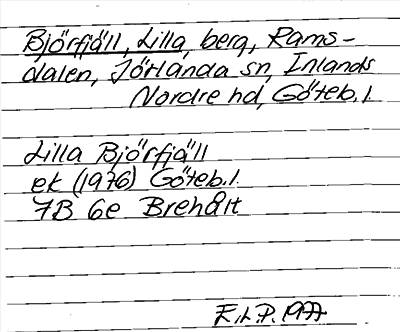 Björfjäll, Lilla, berg, Rams-
dalen, Jörlanda sn, Inlands
Nordre hd, Göteb. l.
Lilla Björfjäll
ek (1976) Göteb. l.
7B 6e Brehålt
E.L.P. 1977